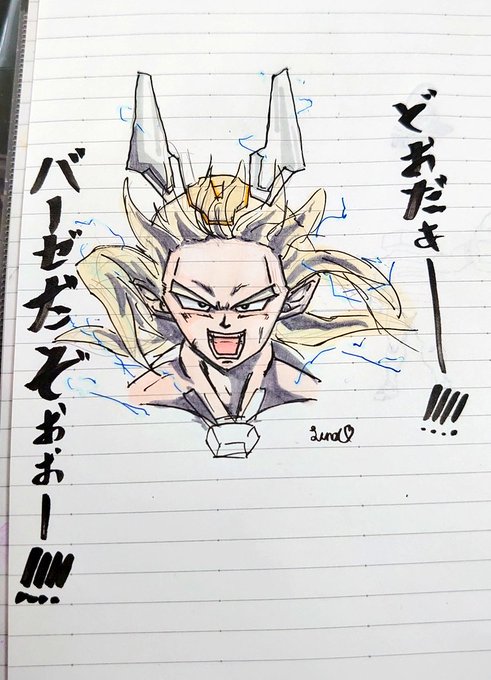 どぉだぁー!!!!
バーゼだぞぉぉー!!!!
Luna